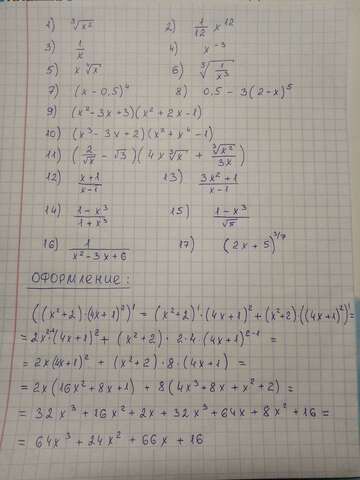 1) ∛x² 2) 1/12 x¹²
3) 1/x 4) x⁻³
5) x ∜x 6) ⁵√(1/x³)
7) (x - 0,5)⁴ 8) 0,5 - 3(2-x)⁵
9) (x² - 3x + 3)(x² + 2x - 1)
10) (x³ - 3x + 2)(x² + x⁴ - 1)
11) (2/√x - √3)(4x ∛x + ∛x²/3x)
12) (x+1)/(x-1) 13) (3x²+1)/(x-1)
14) (1-x³)/(1+x³) 15) (1-x³)/√5
16) 1/(x²-3x+6) 17) (2x+5)³/⁷
ОФОРМЛЕНИЕ :
((x²+2)·(4x+1)²)' = (x²+2)'·(4x+1)² + (x²+2)·((4x+1)²)' =
= 2x²⁻¹·(4x+1)² + (x²+2)·2·4·(4x+1)²⁻¹ =
= 2x·(4x+1)² + (x²+2)·8·(4x+1) =
= 2x(16x²+8x+1) + 8(4x³+8x+x²+2) =
= 32x³ + 16x² + 2x + 32x³ + 64x + 8x² + 16 =
= 64x³ + 24x² + 66x + 16